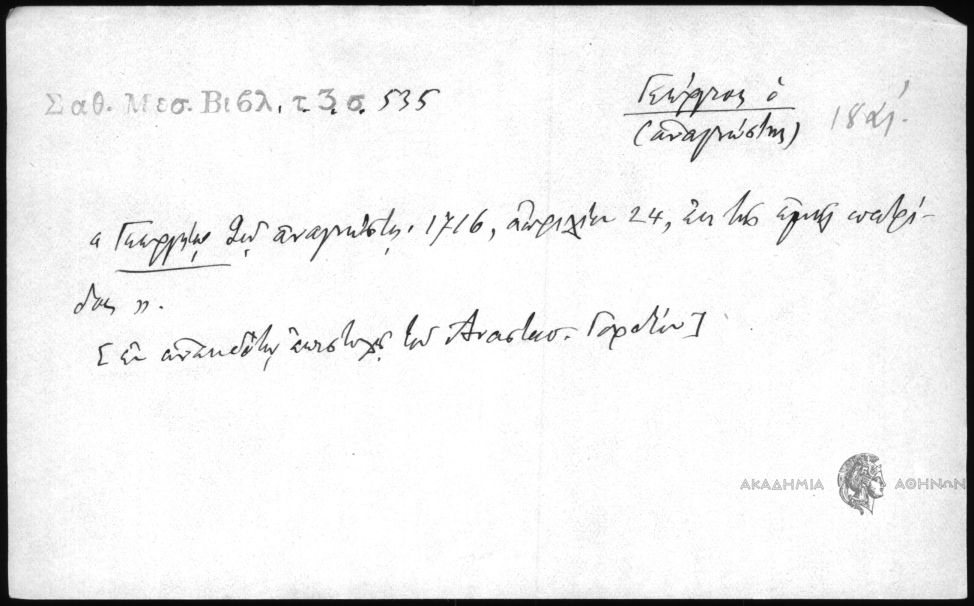 Σαθ. Μεσ. Βιβλ. τ. 3 σ. 535
Γεώργιος ὁ
(ἀναγνώστης)
18 αἰ.
« Γεωργίῳ τῷ ἀναγνώστῃ. 1716, ἀπριλίου 24, ἐκ τῆς ἐμῆς πατρί-
δος ».
[ ἐν ἀνεκδότῳ ἐπιστολῇ τοῦ Ἀναστασ. Γορδίου ]
ΑΚΑΔΗΜΙΑ ΑΘΗΝΩΝ